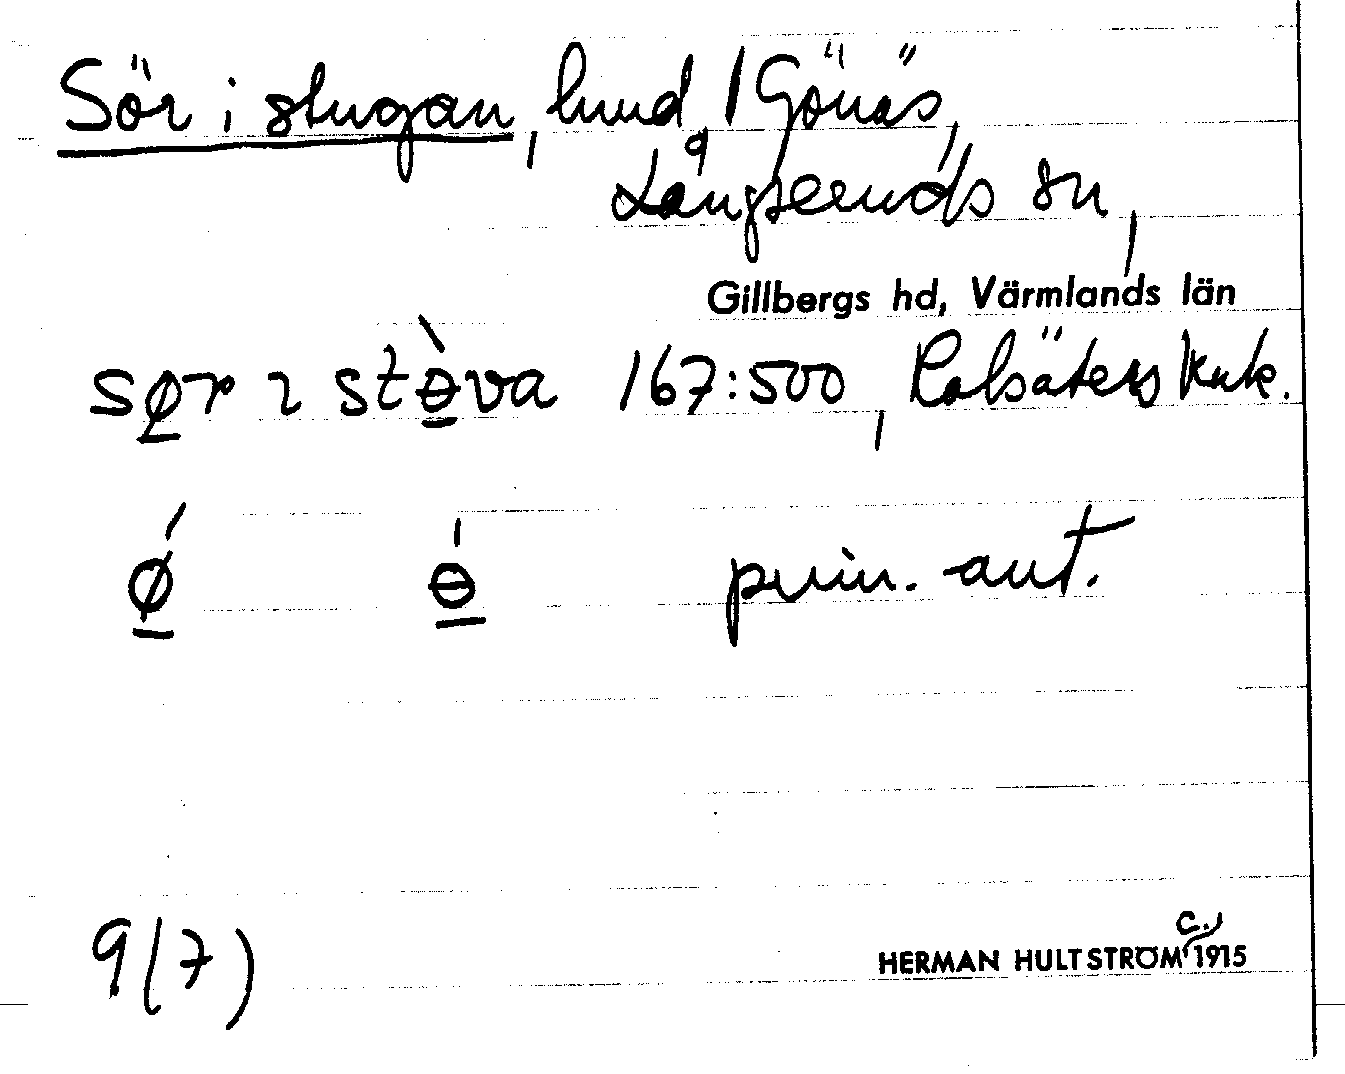 Sör i stugan, hmd, 1 Gönäs,
Långseruds sn,
Gillbergs hd, Värmlands län
sør ɩ stɵ̀va 167:500, Rolsäters
ǿ ɵ́ prim. ant.
9(7)
c.,
HERMAN HULTSTRÖM 1915